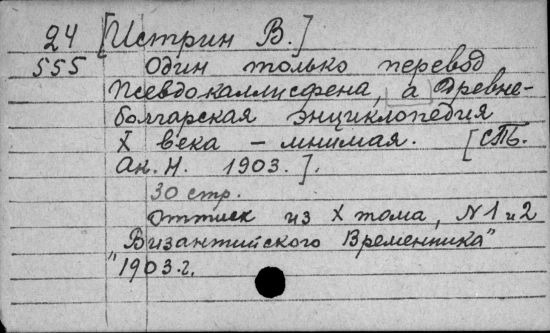 24 [Истрин В.]
555 Один только перевод
Псевдокаллисфена, а древне-
болгарская энциклопедия
X века – мнимая. [СПБ.
Ак. Н. 1903.].
30 стр.
Оттиск из X тома, N 1 и 2
"Византийского Временника"
1903 г.